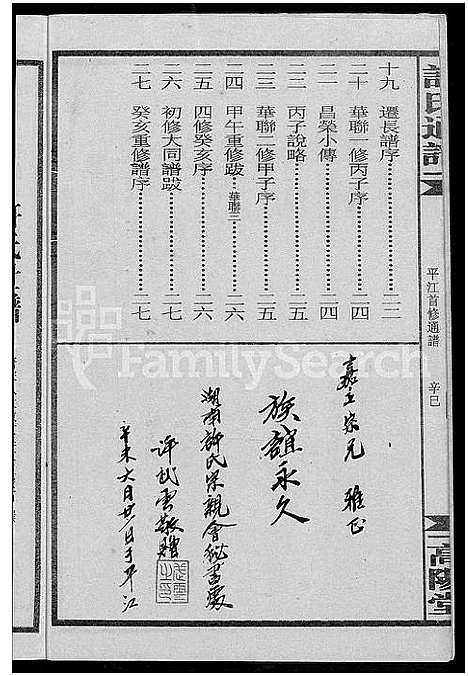 許氏通譜
平江首修通譜
辛巳
高陽堂
十九 遷長譜序 二二
二十 華聯一修丙子序 二四
二一 昌榮小傳 二四
二二 丙子說略 二五
二三 華聯二修甲子序 二五
二四 甲午重修跋 華聯三 二六
二五 四修癸亥序 二六
二六 初修大同譜跋 二七
二七 癸亥重修譜序 二七
宗兄 雅正
族誼永久
湖南許氏宗親會秘書處
許武雲敬贈
辛未六月廿一日于平江
FamilySearch